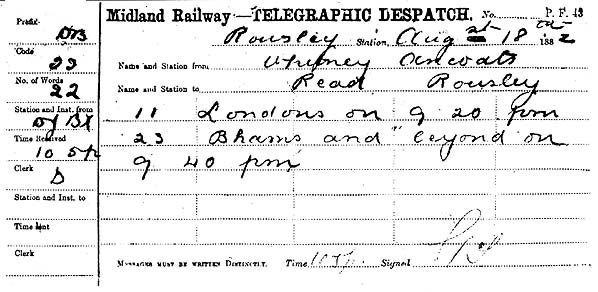 Midland Railway—TELEGRAPHIC DESPATCH. No. P. F. 43
Prefix
Rowsley Station, Aug 18th 1882
Code
23
Name and Station from
No. of Words
22
Name and Station to Read Rowsley
Station and Inst. from
11 Londons on 9 20 pm
Time Received
10 5p
23 Bhams and beyond on
Clerk
D
9 40 pm
Station and Inst. to
Time Sent
Clerk
MESSAGES MUST BE WRITTEN DISTINCTLY. Time 10 5p. Signed